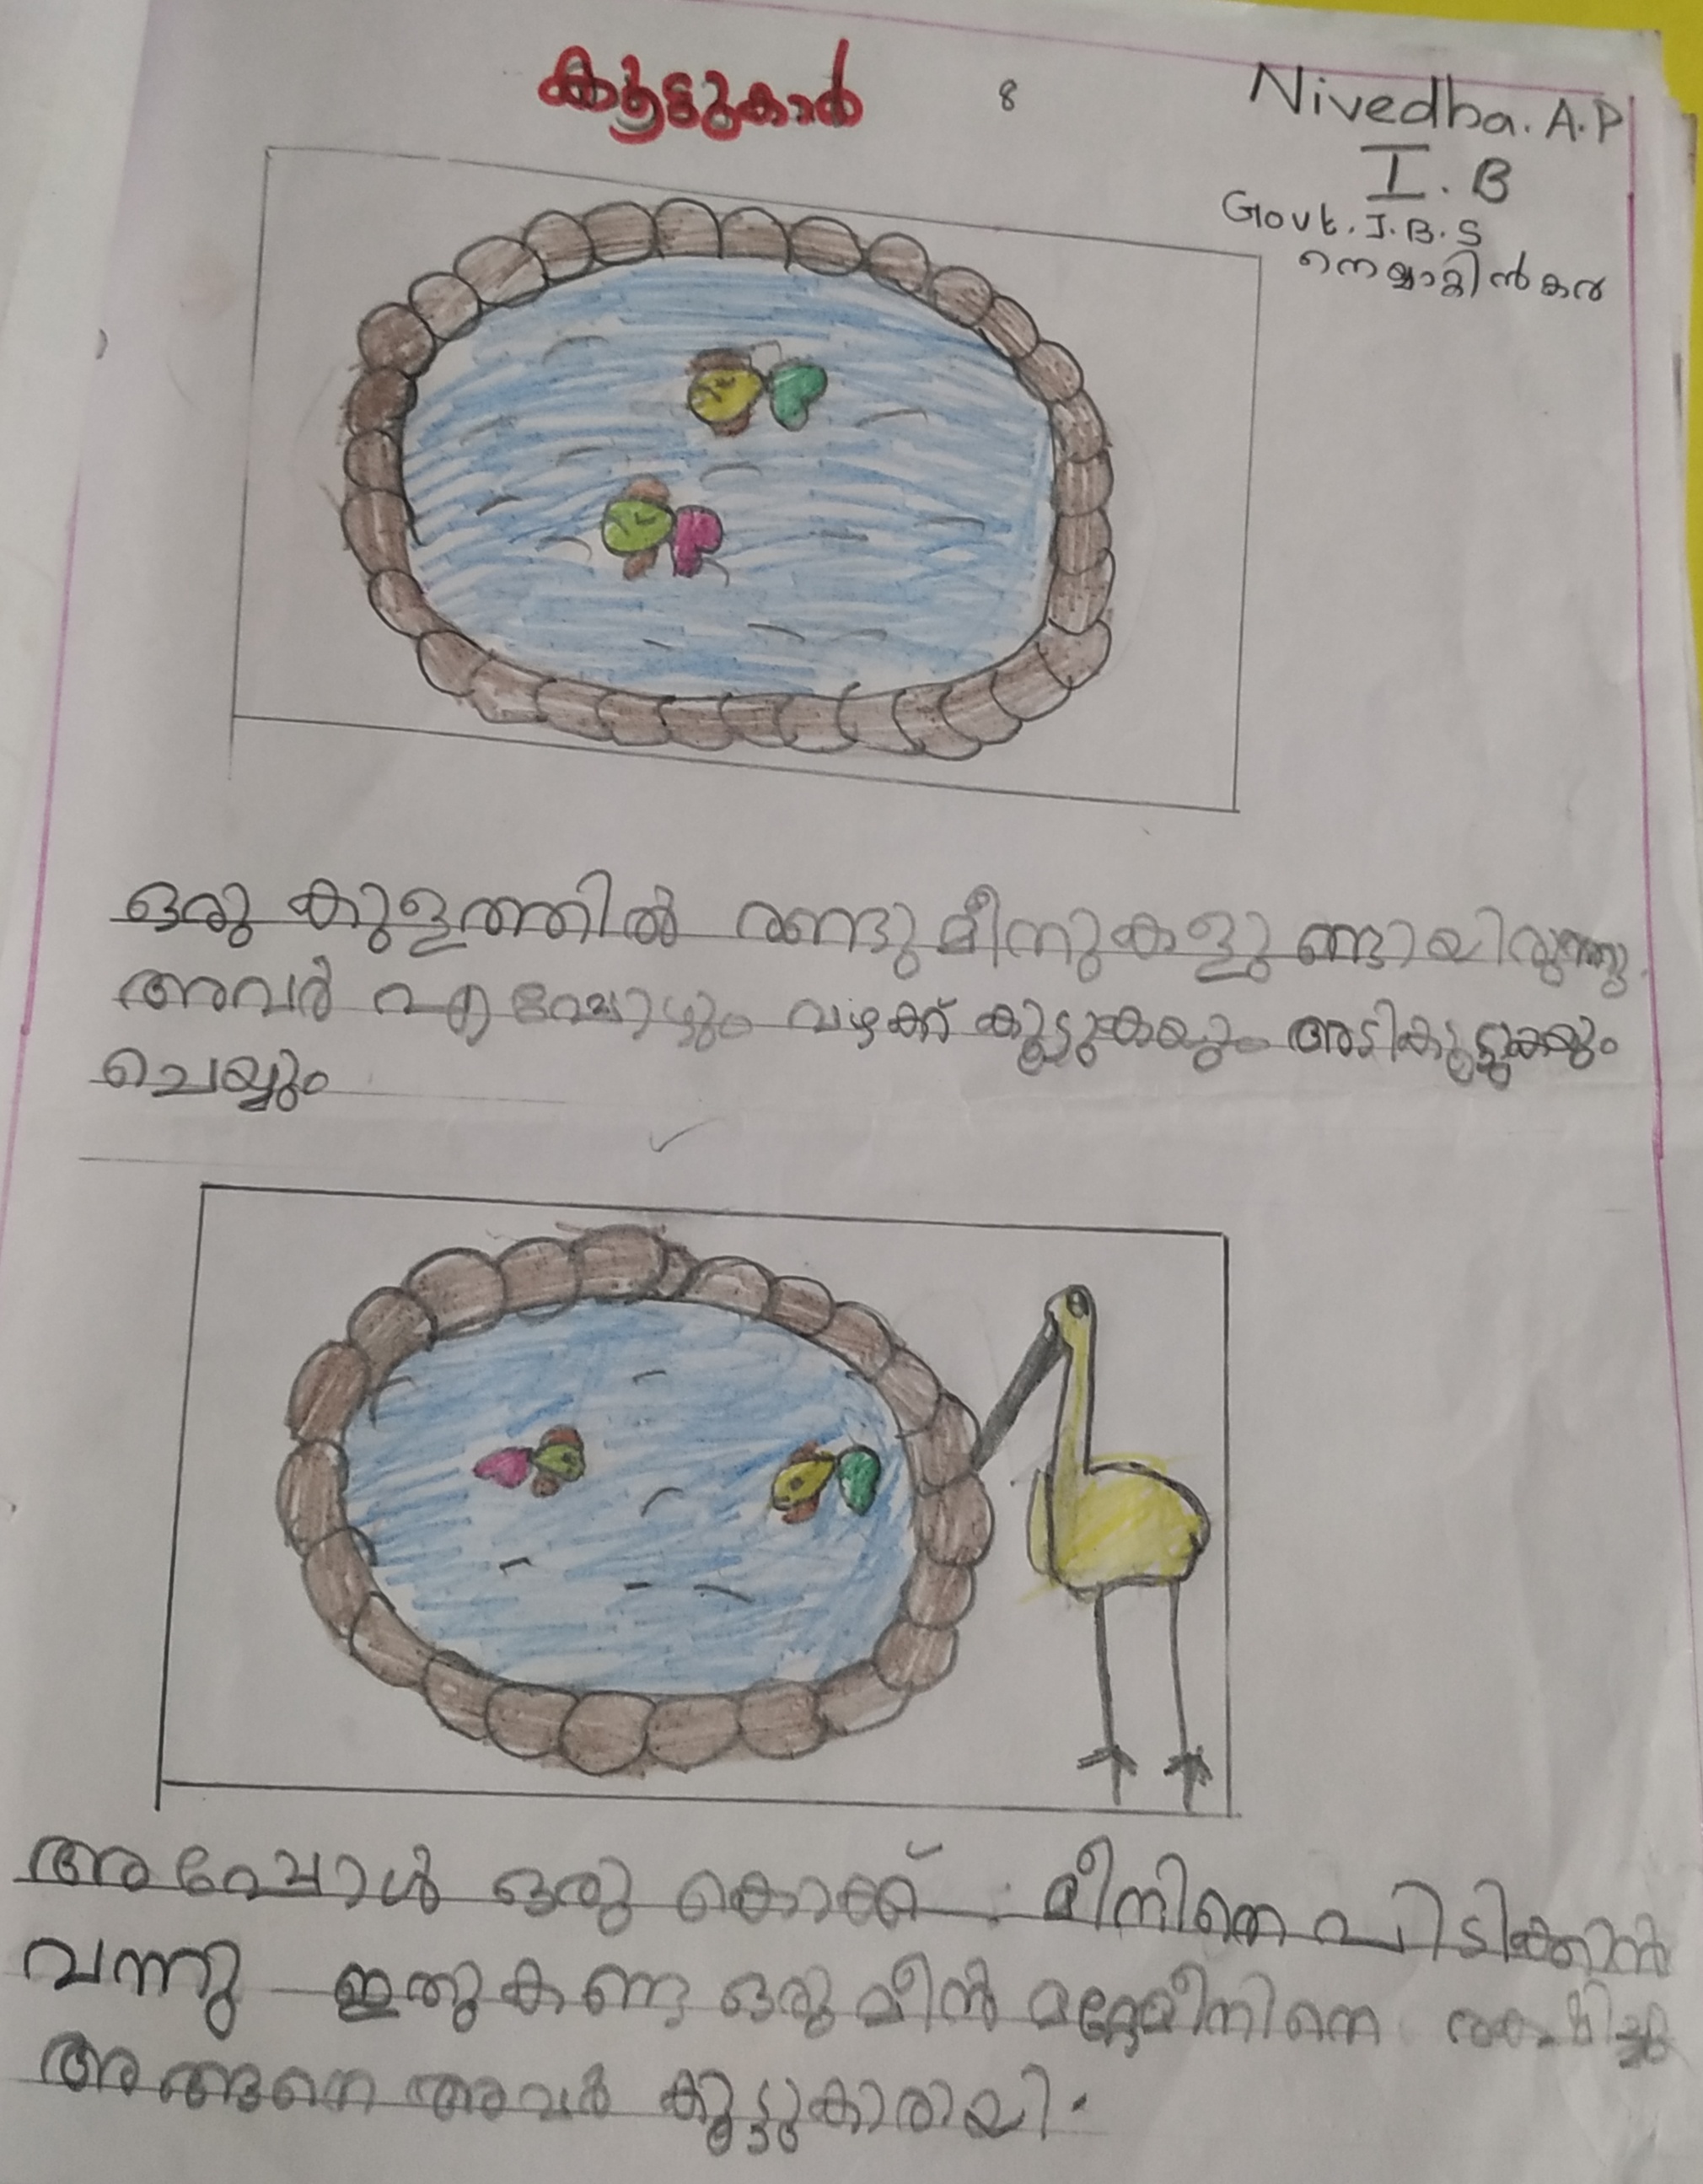 കൂട്ടുകാർ
8
Nivedha. A.P
I. B
Govt. J. B. S
നെയ്യാറ്റിൻകര
ഒരു കുളത്തിൽ രണ്ടു മീനുകളു ണ്ടായിരുന്നു.
അവർ എപ്പോഴും വഴക്ക് കൂട്ടുകയും അടികൂട്ടുകയും
ചെയ്യും
അപ്പോൾ ഒരു കൊക്ക് മീനിനെ പിടിക്കാൻ
വന്നു ഇതുകണ്ട ഒരു മീൻ മറ്റേമീനിനെ രക്ഷിച്ചു
അങ്ങനെ അവർ കൂട്ടുകാരായി.